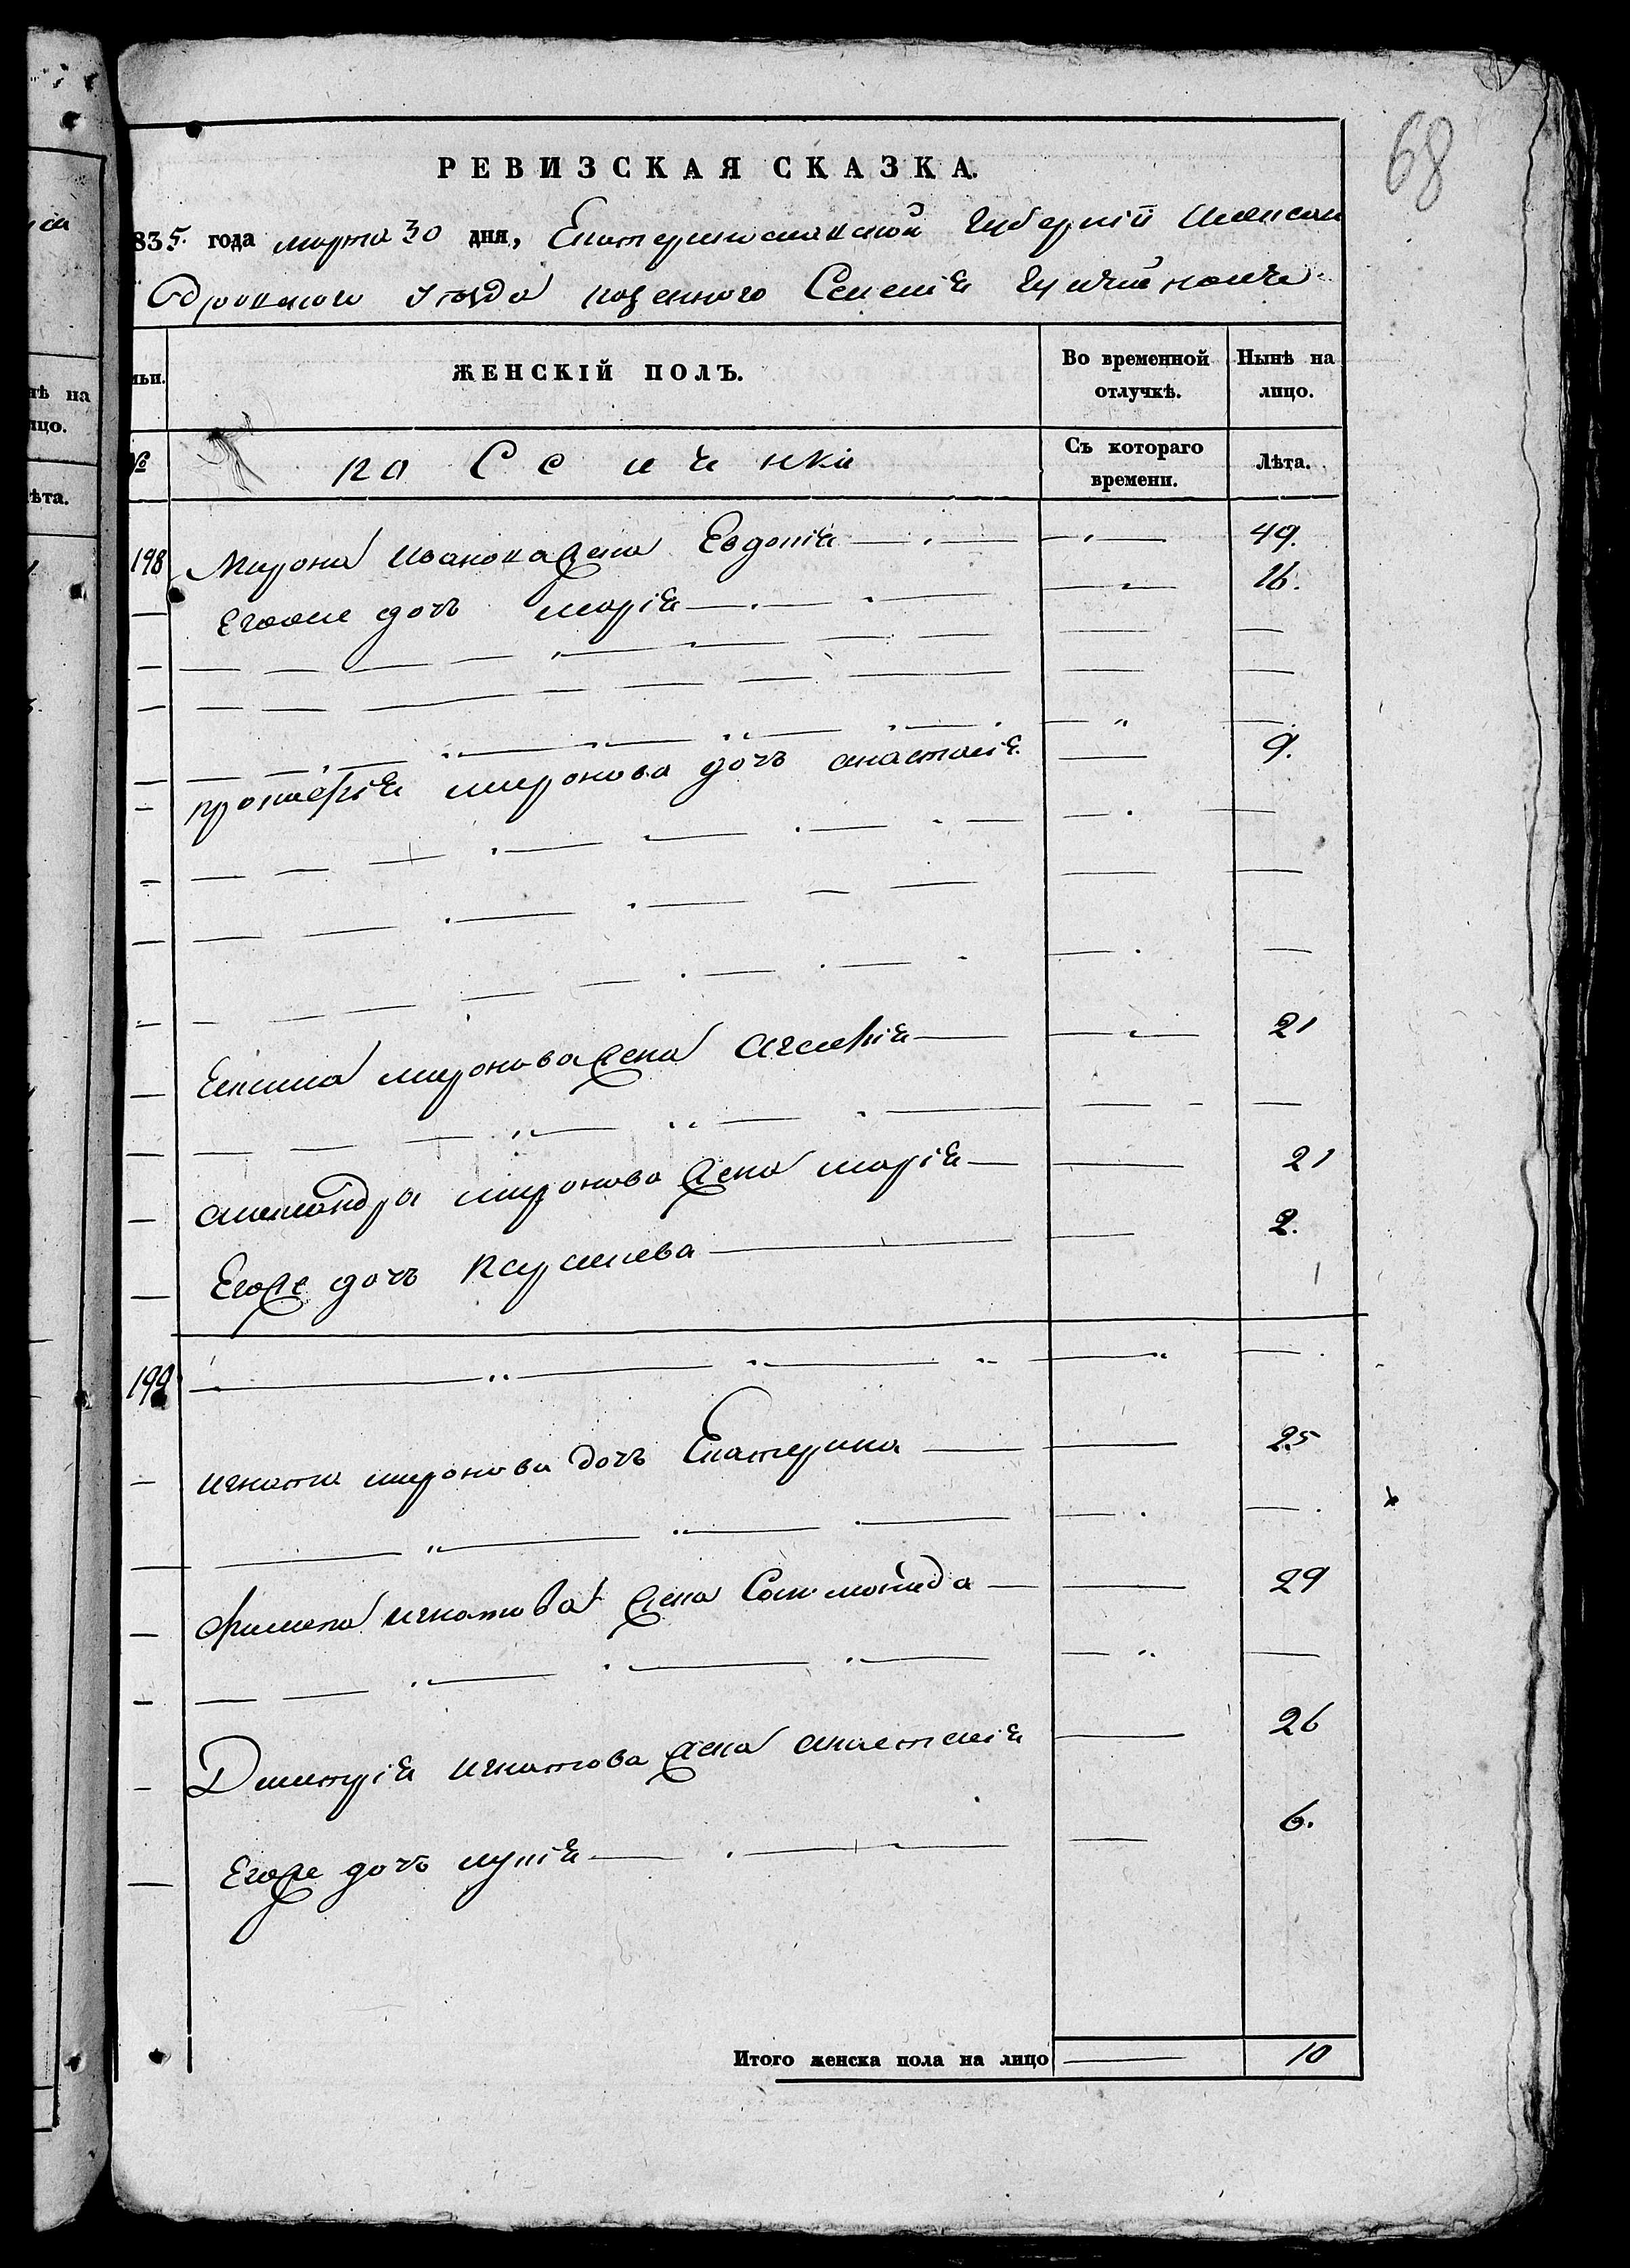 68
РЕВИЗСКАЯ СКАЗКА.
835. года марта 30 дня, Екатеринославской Губернїи Алексан
Дровского Уезда казенного Селенїя Гуляйполя
ньи. ЖЕНСКІЙ ПОЛЪ. Во временной отлучкѣ. Нынѣ на лицо.
№ Съ котораго времени. Лѣта.
198 Мирона Иванова жена Евдокїя 49.
Егоже дочь марїя 16.
прокофїя миронова дочь анастасїя 9.
Екима миронова жена Агафїя 21
александра миронова жена марїя 21
Егоже дочь 2.
199
игната миронова дочь Екатерина 25
филипа игнатова жена 29
Дмитрїя игнатова жена анастасїя 26
Егоже дочь 6.
Итого женска пола на лицо 10
нѣ на
ицо.
ѣта.